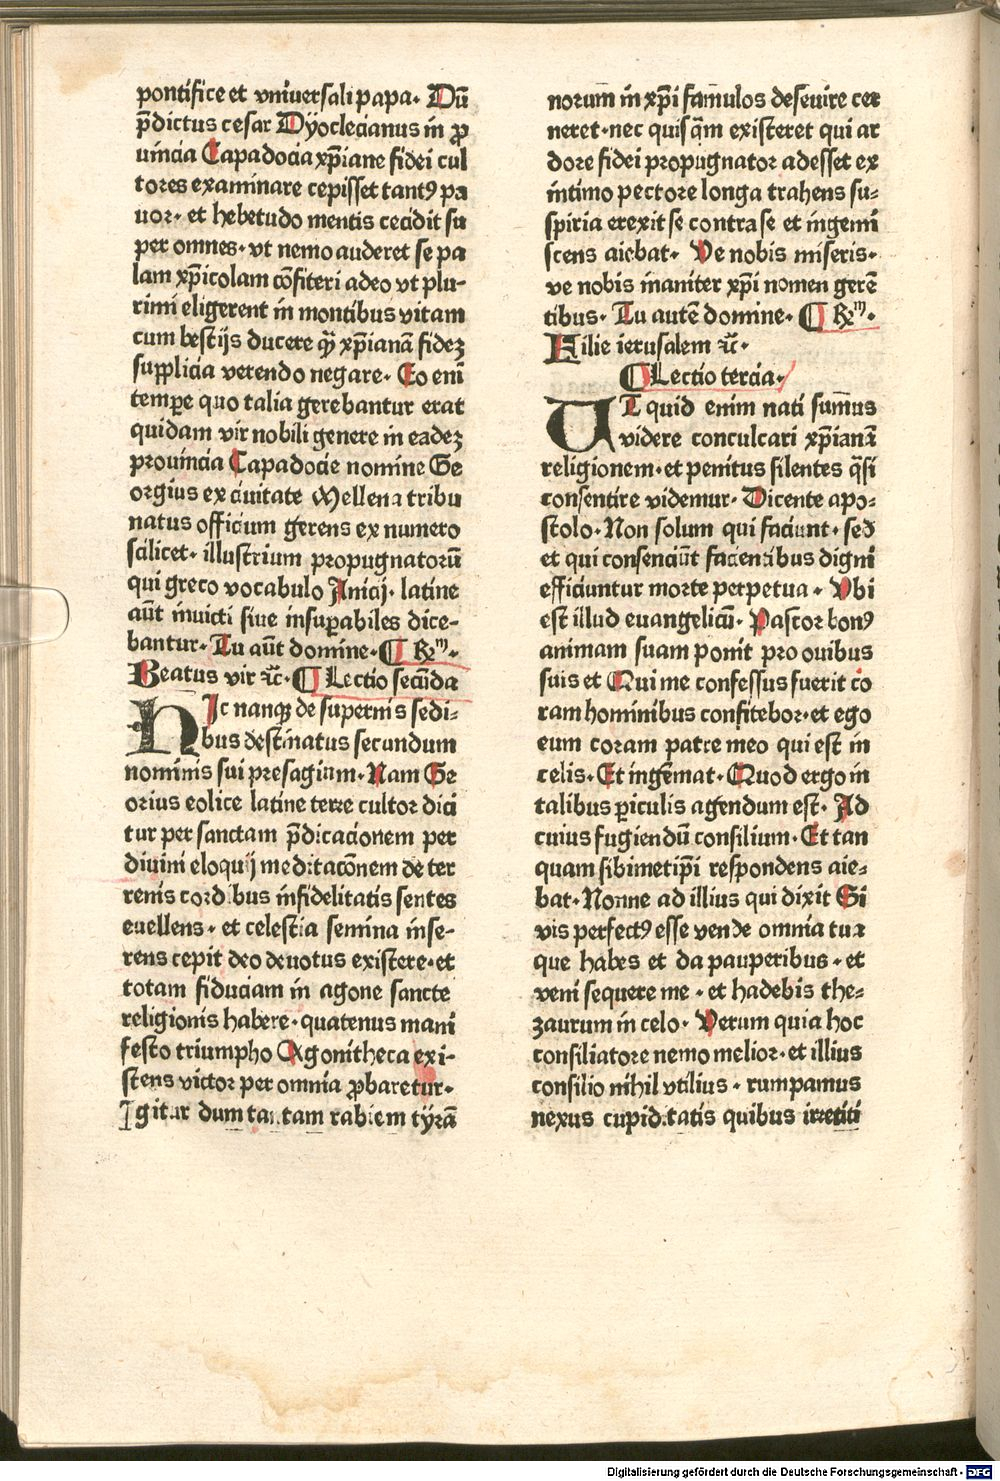 pontifice et vniuersali papa. Dū
p̄dictus cesar Dyoclecianus in ꝓ
uincia Capadocia xp̄iane fidei cul
tores examinare cepisset tantꝰ pa
uor. et hebetudo mentis cecidit su
per omnes. vt nemo auderet se pa
lam xp̄icolam cōfiteri adeo vt plu-
rimi eligerent in montibus vitam
cum bestijs ducere qȝ xp̄ianā fidez
supplicia verendo negare. Eo eni
tempe̱ quo talia gerebantur erat
quidam vir nobili genere in eadez
prouincia Capadocie nomine Ge
orgius ex ciuitate Mellena tribu
natus officium gerens ex numero
scilicet. illustrium propugnatorū
qui greco vocabulo Anicij. latine
aūt inuicti siue insuꝑabiles dice-
bantur. Tu aūt domine. ¶ Rm.
Beatus vir ꝛc̄. ¶ Lectio secūda
HIc nanqȝ de supernis sedi-
bus destinatus secundum
nominis sui presagium. Nam Ge
orius eolice latine terre cultor dici
tur per sanctam p̄dicacionem per
diuini eloquij meditacōnem de ter
renis cordibus infidelitatis sentes
euellens. et celestia semina inse-
rens cepit deo deuotus existere. et
totam fiduciam in agone sancte
religionis habere. quatenus mani
festo triumpho Agonitheca exi-
stens victor per omnia ꝓbaretur.
Igitur dum tantam rabiem tyrā
norum in xp̄i famulos deseuire cer
neret. nec quisq̄m existeret qui ar
dore fidei propugnator adesset ex
intimo pectore longa trahens su-
spiria erexit se contra se et ingemi
scens aiebat. Ve nobis miseris.
ve nobis inaniter xp̄i nomen gerē
tibus. Tu autē domine. ¶ Rm.
Filie ierusalem ꝛc̄.
¶ Lectio tercia.
UT quid enim nati sumus
videre conculcari xp̄ianā
religionem. et penitus silentes q̄si
consentire videmur. Dicente apo-
stolo. Non solum qui faciunt. sed
et qui consenciūt facientibus digni
efficiuntur morte perpetua. Vbi
est illud euangelicū. Pastor bonꝰ
animam suam ponit pro ouibus
suis et Qui me confessus fuerit co
ram hominibus confitebor. et ego
eum coram patre meo qui est in
celis. Et ingēmat. Quod ergo in
talibus ꝑiculis agendum est. Ad
cuius fugiendū consilium. Et tan
quam sibimetip̄i respondens aie-
bat. Nonne ad illius qui dixit Si
vis perfectꝰ esse vende omnia tua
que habes et da pauperibus. et
veni sequere me. et hadebis the-
zaurum in celo. Verum quia hoc
consiliatore nemo melior. et illius
consilio nihil vtilius. rumpamus
nexus cupiditatis quibus irretiti
Digitalisierung gefördert durch die Deutsche Forschungsgemeinschaft - DFG